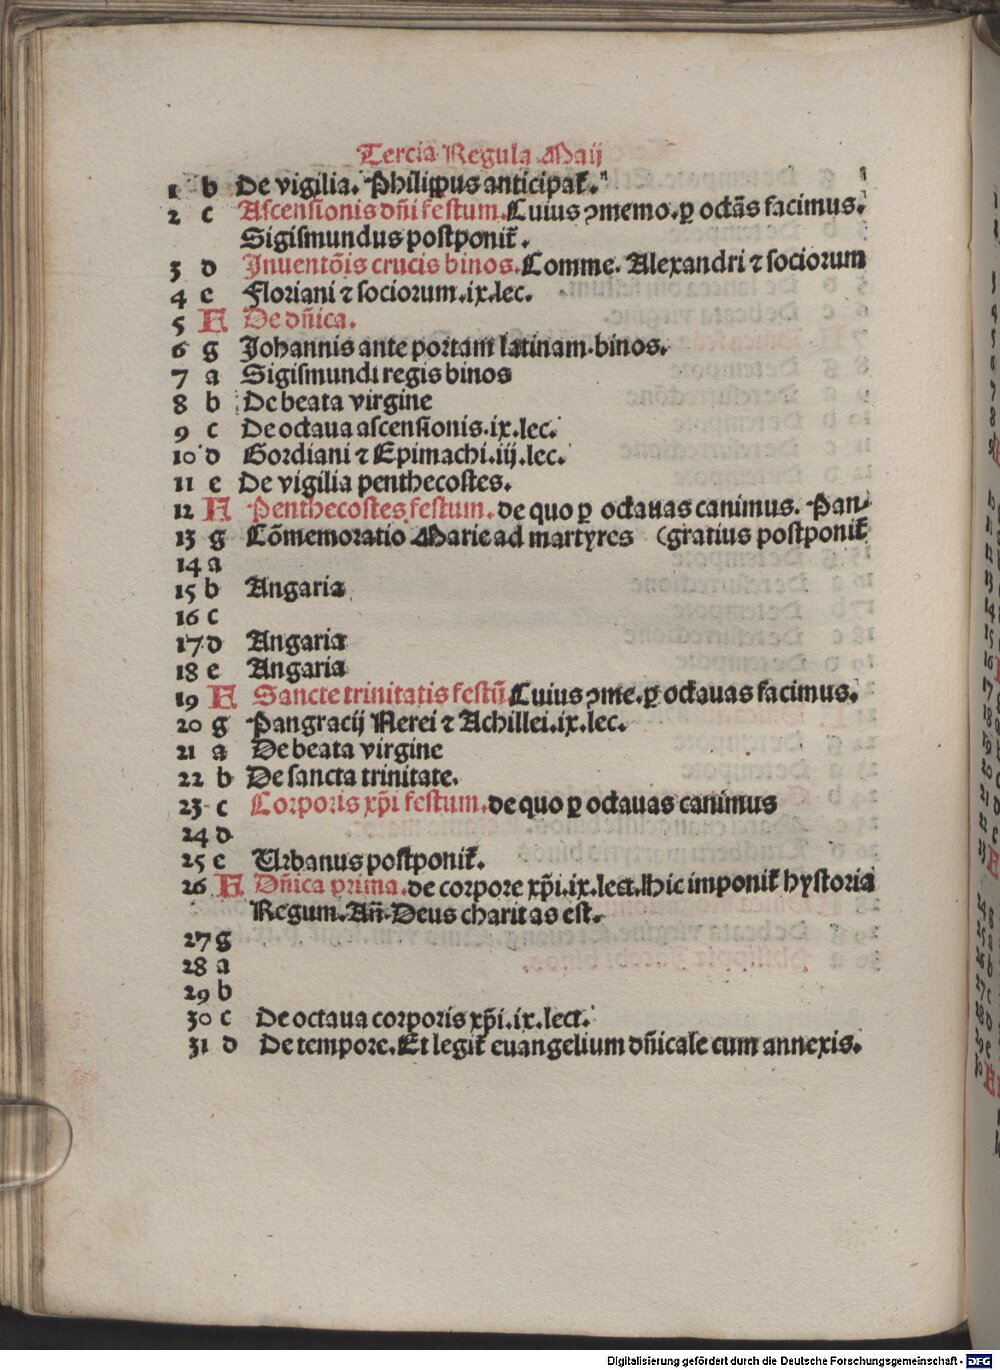 Tercia Regula Maij
1 b De vigilia. Philippus anticipat̄.
2 c Ascensionis dn̄i festum. Cuius ɔmemo. ꝑ octãs facimus.
Sigismundus postponit̄.
3 d Inuentõis crucis binos. Comme. Alexandri ⁊ sociorum
4 e Floriani ⁊ sociorum. ix. lec.
5 A De dñica.
6 g Johannis ante portam latinam binos.
7 a Sigismundi regis binos
8 b De beata virgine
9 c De octaua ascensionis. ix. lec.
10 d Gordiani ⁊ Epimachi. iij. lec.
11 e De vigilia penthecostes.
12 A Penthecostes festum. de quo ꝑ octauas canimus. Pan⸗
13 g Cõmemoratio Marie ad martyres (gratius postponit̄
14 a
15 b Angaria
16 c
17 d Angaria
18 e Angaria
19 A Sancte trinitatis festũ. Cuius ɔme. ꝑ octauas facimus.
20 g Pangracij Nerei ⁊ Achillei. ix. lec.
21 a De beata virgine
22 b De sancta trinitate.
23 c Corporis xp̄i festum. de quo ꝑ octauas canimus
24 d
25 e Urbanus postponit̄.
26 A Dñica prima. de corpore xp̄i. ix. lect. Hic imponit̄ hystoria
Regum. Añ. Deus charitas est.
27 g
28 a
29 b
30 c De octaua corporis xp̄i. ix. lect.
31 d De tempore. Et legit̄ euangelium dñicale cum annexis.
Digitalisierung gefördert durch die Deutsche Forschungsgemeinschaft - DFG